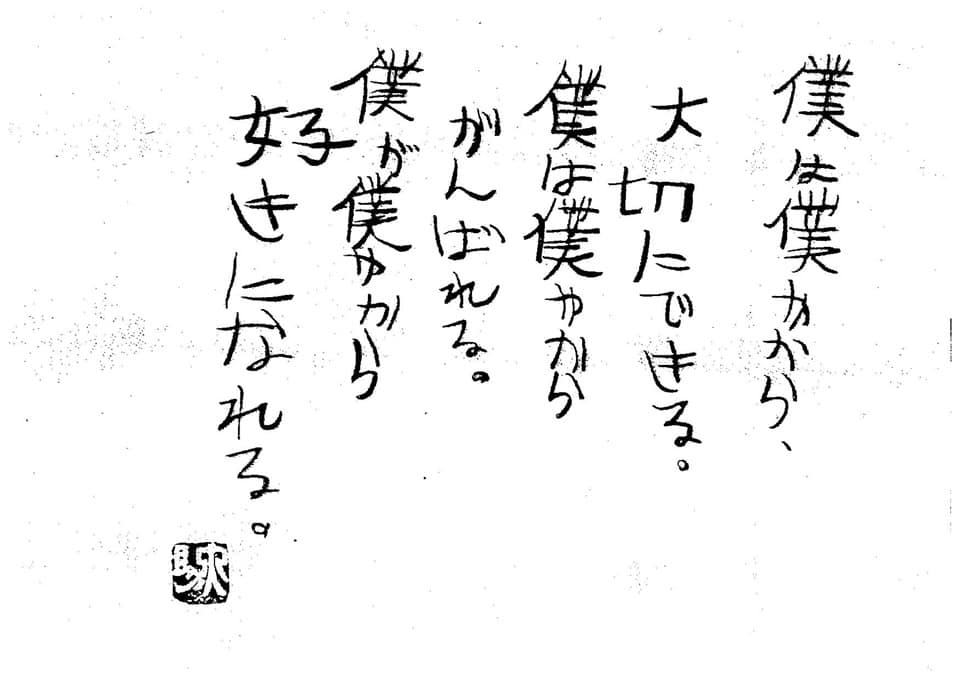 僕は僕やから、
大切にできる。
僕は僕やから
がんばれる。
僕が僕やから
好きになれる。